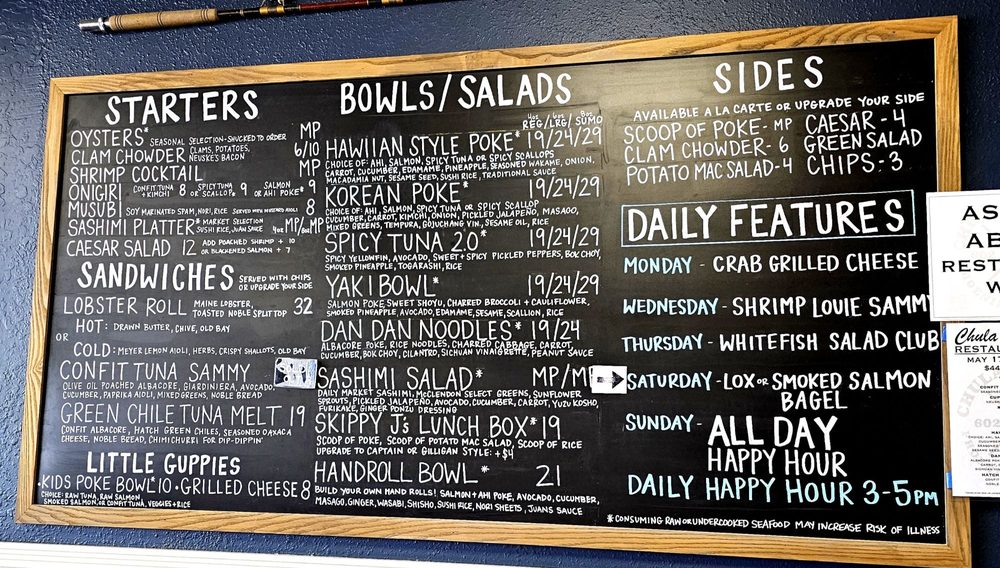 STARTERS
OYSTERS* SEASONAL SELECTION-SHUCKED TO ORDER MP
CLAM CHOWDER CLAMS, POTATOES, NEUSKE'S BACON 6/10
SHRIMP COCKTAIL MP
ONIGIRI CONFIT TUNA + KIMCHI 8 OR SPICY TUNA OR SCALLOP* 9 OR SALMON OR AHI POKE* 9
MUSUBI SOY MARINATED SPAM, NORI, RICE SERVED WITH MUSTARD AIOLI 8
SASHIMI PLATTER* MARKET SELECTION SUSHI RICE, JUAN SAUCE 4oz MP/8oz MP
CAESAR SALAD 12 ADD POACHED SHRIMP + 10
OR BLACKENED SALMON + 7
SANDWICHES SERVED WITH CHIPS
OR UPGRADE YOUR SIDE
LOBSTER ROLL MAINE LOBSTER, TOASTED NOBLE SPLIT TOP 32
HOT: DRAWN BUTTER, CHIVE, OLD BAY
OR
COLD: MEYER LEMON AIOLI, HERBS, CRISPY SHALLOTS, OLD BAY
CONFIT TUNA SAMMY
OLIVE OIL POACHED ALBACORE, GIARDINIERA, AVOCADO,
CUCUMBER, PAPRIKA AIOLI, MIXED GREENS, NOBLE BREAD
GREEN CHILE TUNA MELT 19
CONFIT ALBACORE, HATCH GREEN CHILES, SEASONED OAXACA
CHEESE, NOBLE BREAD, CHIMICHURRI FOR DIP-DIPPIN'
LITTLE GUPPIES
•KIDS POKE BOWL* 10 •GRILLED CHEESE 8
CHOICE: RAW TUNA, RAW SALMON
SMOKED SALMON OR CONFIT TUNA, VEGGIES + RICE
BOWLS/SALADS
4oz 6oz 8oz
REG/LRG/SUMO
HAWIIAN STYLE POKE* 19/24/29
CHOICE OF: AHI, SALMON, SPICY TUNA OR SPICY SCALLOPS
CARROT, CUCUMBER, EDAMAME, PINEAPPLE, SEASONED WAKAME, ONION,
MACADAMIA NUT, SESAME SEED, SUSHI RICE, TRADITIONAL SAUCE
KOREAN POKE* 19/24/29
CHOICE OF: AHI, SALMON, SPICY TUNA OR SPICY SCALLOP
CUCUMBER, CARROT, KIMCHI, ONION, PICKLED JALAPENO, MASAGO,
MIXED GREENS, TEMPURA, GOJUCHANG VIN, SESAME OIL, RICE
SPICY TUNA 2.0* 19/24/29
SPICY YELLOWFIN, AVOCADO, SWEET + SPICY PICKLED PEPPERS, BOK CHOY,
SMOKED PINEAPPLE, TOGARASHI, RICE
YAKI BOWL* 19/24/29
SALMON POKE, SWEET SHOYU, CHARRED BROCCOLI + CAULIFLOWER,
SMOKED PINEAPPLE, AVOCADO, EDAMAME, SESAME, SCALLION, RICE
DAN DAN NOODLES* 19/24
ALBACORE POKE, RICE NOODLES, CHARRED CABBAGE, CARROT,
CUCUMBER, BOK CHOY, CILANTRO, SICHUAN VINAIGRETTE, PEANUT SAUCE
SASHIMI SALAD* MP/MP
DAILY MARKET SASHIMI, MCCLENDON SELECT GREENS, SUNFLOWER
SPROUTS, PICKLED JALAPENO, AVOCADO, CUCUMBER, CARROT, YUZU KOSHO,
FURIKAKE, GINGER PONZU DRESSING
SKIPPY J'S LUNCH BOX* 19
SCOOP OF POKE, SCOOP OF POTATO MAC SALAD, SCOOP OF RICE
UPGRADE TO CAPTAIN OR GILLIGAN STYLE: +$4
HANDROLL BOWL* 21
BUILD YOUR OWN HAND ROLLS! SALMON + AHI POKE, AVOCADO, CUCUMBER,
MASAGO, GINGER, WASABI, SHISHO, SUSHI RICE, NORI SHEETS, JUANS SAUCE
SIDES
AVAILABLE A LA CARTE OR UPGRADE YOUR SIDE
SCOOP OF POKE - MP CAESAR - 4
CLAM CHOWDER - 6 GREEN SALAD
POTATO MAC SALAD - 4 CHIPS - 3
DAILY FEATURES
MONDAY - CRAB GRILLED CHEESE
WEDNESDAY - SHRIMP LOUIE SAMMY
THURSDAY - WHITEFISH SALAD CLUB
SATURDAY - LOX OR SMOKED SALMON
BAGEL
SUNDAY - ALL DAY
HAPPY HOUR
DAILY HAPPY HOUR 3-5PM
*CONSUMING RAW OR UNDERCOOKED SEAFOOD MAY INCREASE RISK OF ILLNESS
AS
AB
REST
W
Chula
RESTAU
MAY 17
$44
602